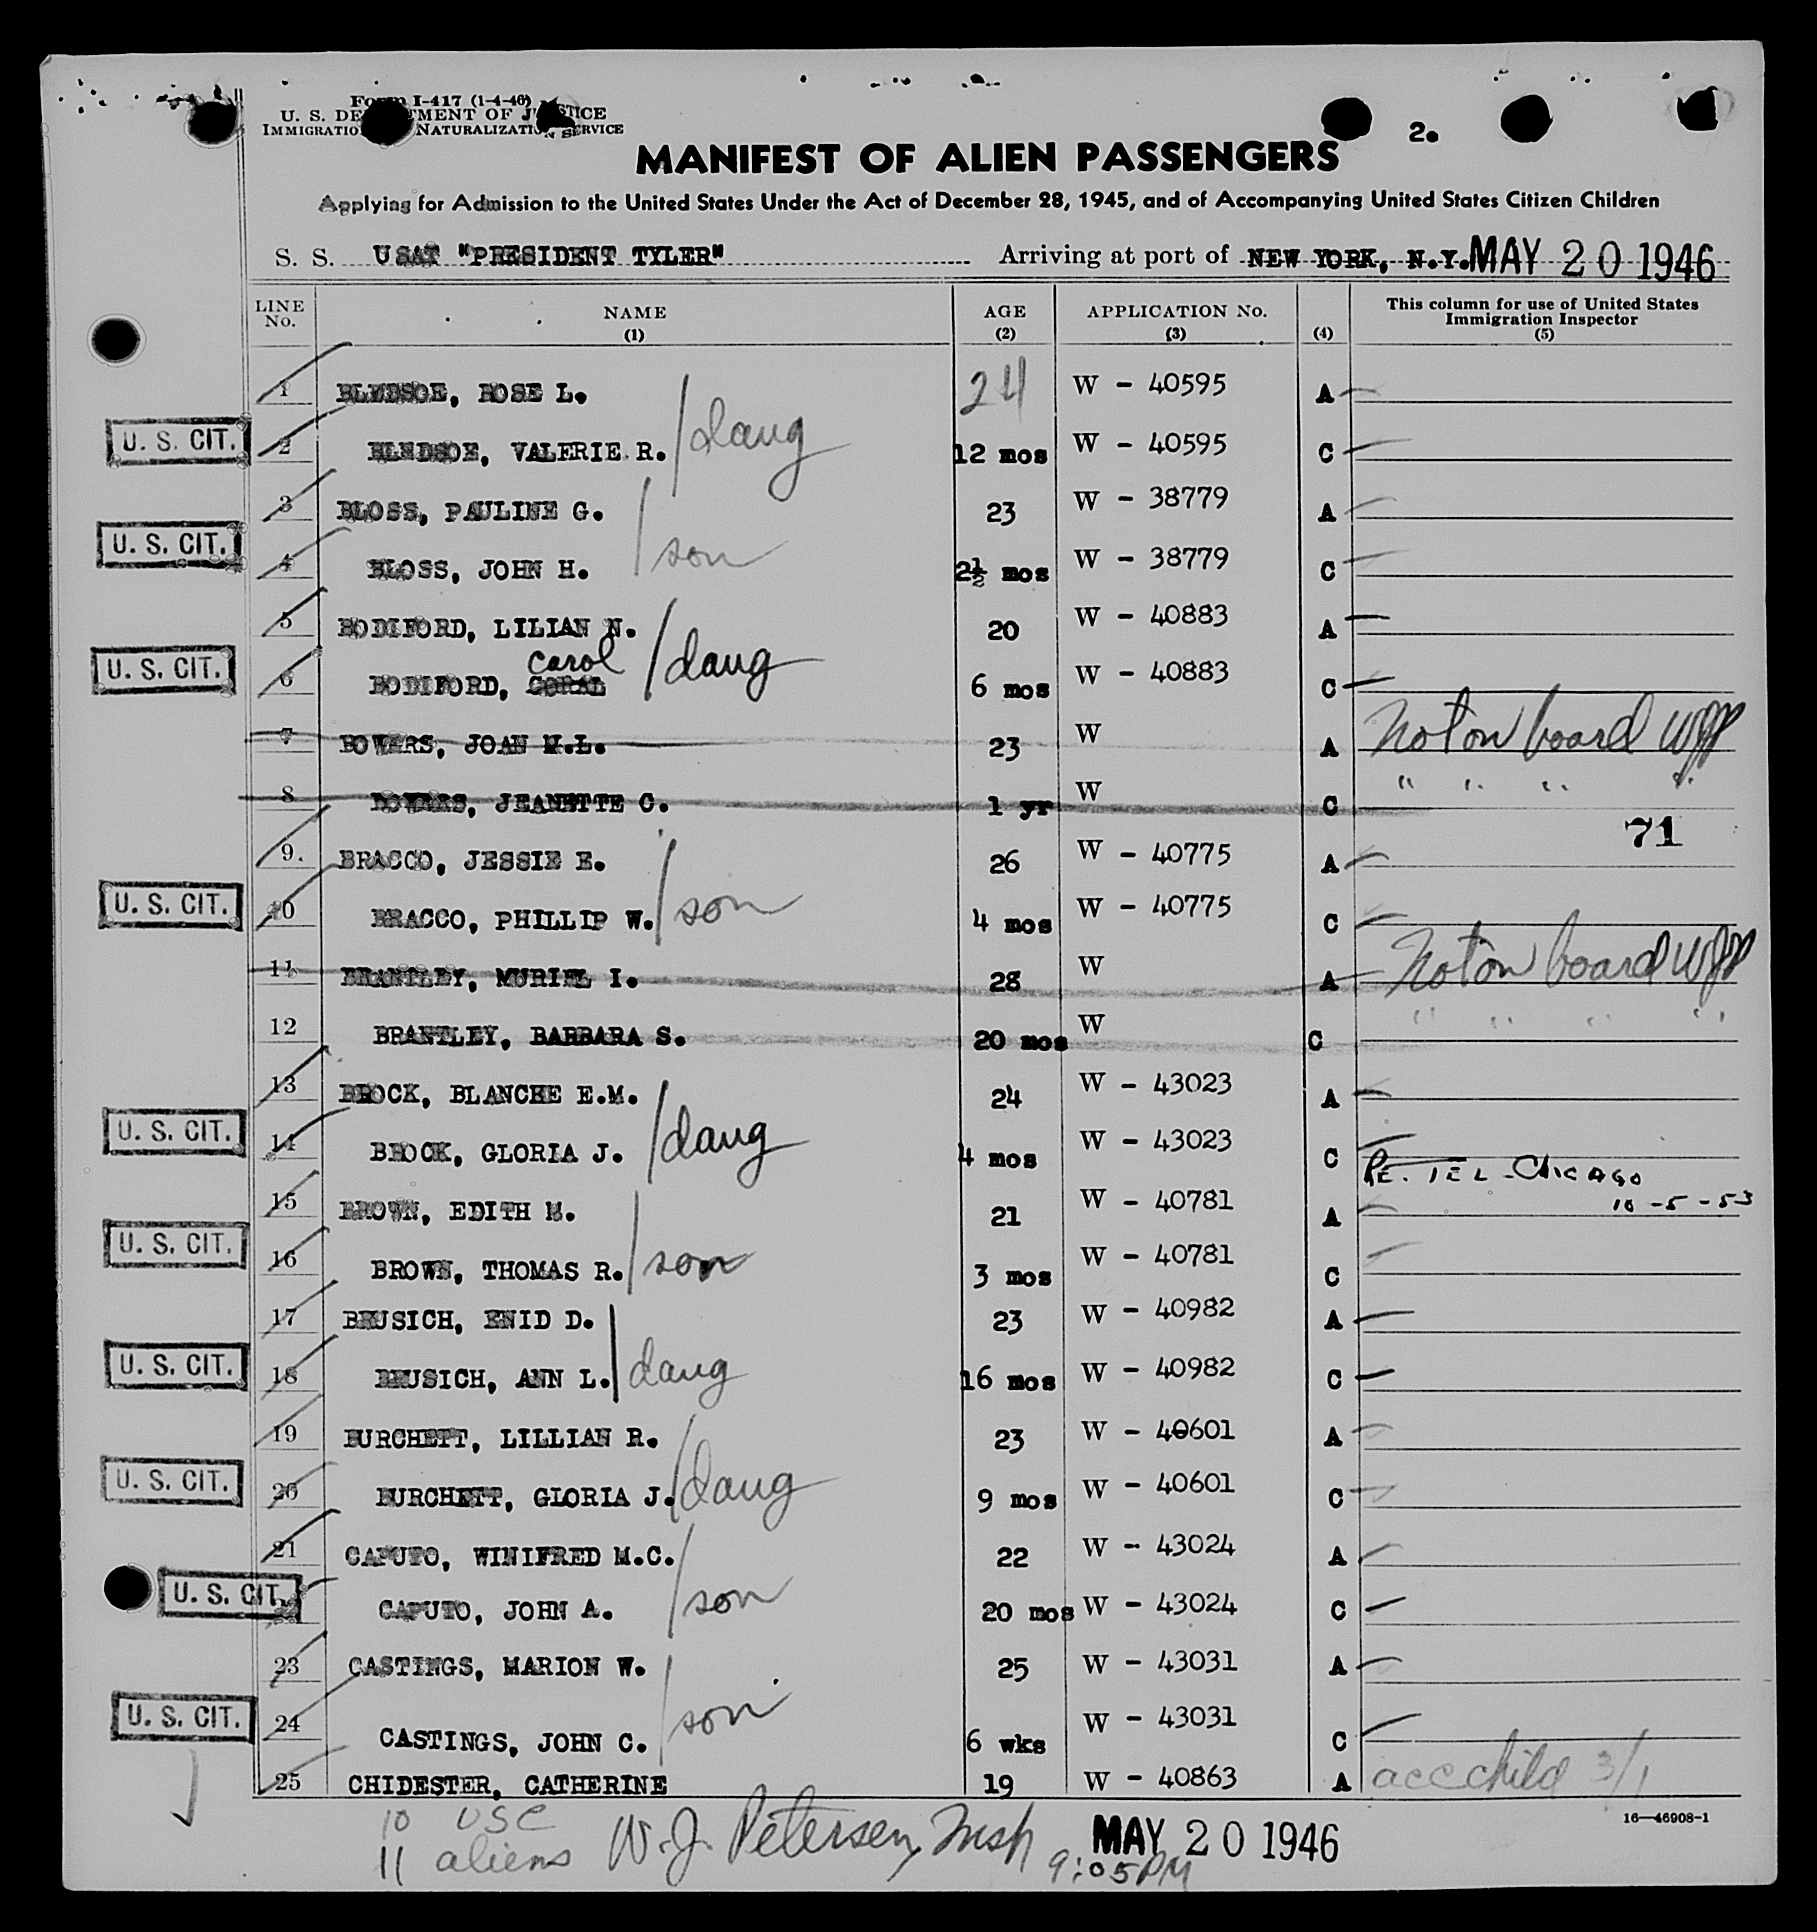 Form I-417 (1-4-46)
U. S. DEPARTMENT OF JUSTICE
IMMIGRATION NATURALIZATION SERVICE
2.
MANIFEST OF ALIEN PASSENGERS
Applying for Admission to the United States Under the Act of December 28, 1945, and of Accompanying United States Citizen Children
S. S. USAT "PRESIDENT TYLER" Arriving at port of NEW YORK, N.Y. MAY 20 1946
LINE No. NAME (1) AGE (2) APPLICATION No. (3) (4) This column for use of United States Immigration Inspector (5)
1 BLEDSOE, ROSE L. 24 W - 40595 A
U. S. CIT. 2 BLEDSOE, VALERIE R. /daug 12 mos W - 40595 C
3 BLOSS, PAULINE G. 23 W - 38779 A
U. S. CIT. 4 BLOSS, JOHN H. /son 2½ mos W - 38779 C
5 BODIFORD, LILIAN N. 20 W - 40883 A
U. S. CIT. 6 BODIFORD, CORAL Carol /daug 6 mos W - 40883 C
7 BOWERS, JOAN M.L. 23 W A Not on board WJP
8 BOWERS, JEANETTE C. 1 yr W C " " " "
71
9. BRACCO, JESSIE E. 26 W - 40775 A
U. S. CIT. 10 BRACCO, PHILLIP W. /son 4 mos W - 40775 C
11 BRANTLEY, MURIEL I. 28 W A Not on board WJP
12 BRANTLEY, BARBARA S. 20 mos W C " " " "
13 BROCK, BLANCHE E.M. 24 W - 43023 A
U. S. CIT. 14 BROCK, GLORIA J. /daug 4 mos W - 43023 C
RE. TEL - CHICAGO
10-5-53
15 BROWN, EDITH M. 21 W - 40781 A
U. S. CIT. 16 BROWN, THOMAS R. /son 3 mos W - 40781 C
17 BRUSICH, ENID D. 23 W - 40982 A
U. S. CIT. 18 BRUSICH, ANN L. /daug 16 mos W - 40982 C
19 BURCHETT, LILLIAN R. 23 W - 40601 A
U. S. CIT. 20 BURCHETT, GLORIA J. /daug 9 mos W - 40601 C
21 CAPUTO, WINIFRED M.C. 22 W - 43024 A
U. S. CIT. CAPUTO, JOHN A. /son 20 mos W - 43024 C
23 CASTINGS, MARION W. 25 W - 43031 A
U. S. CIT. 24 CASTINGS, JOHN C. /son 6 wks W - 43031 C
25 CHIDESTER, CATHERINE 19 W - 40863 A acc child 3/1
16—46908-1
10 USC
11 aliens W. J. Petersen, Insp MAY 20 1946
9:05 PM